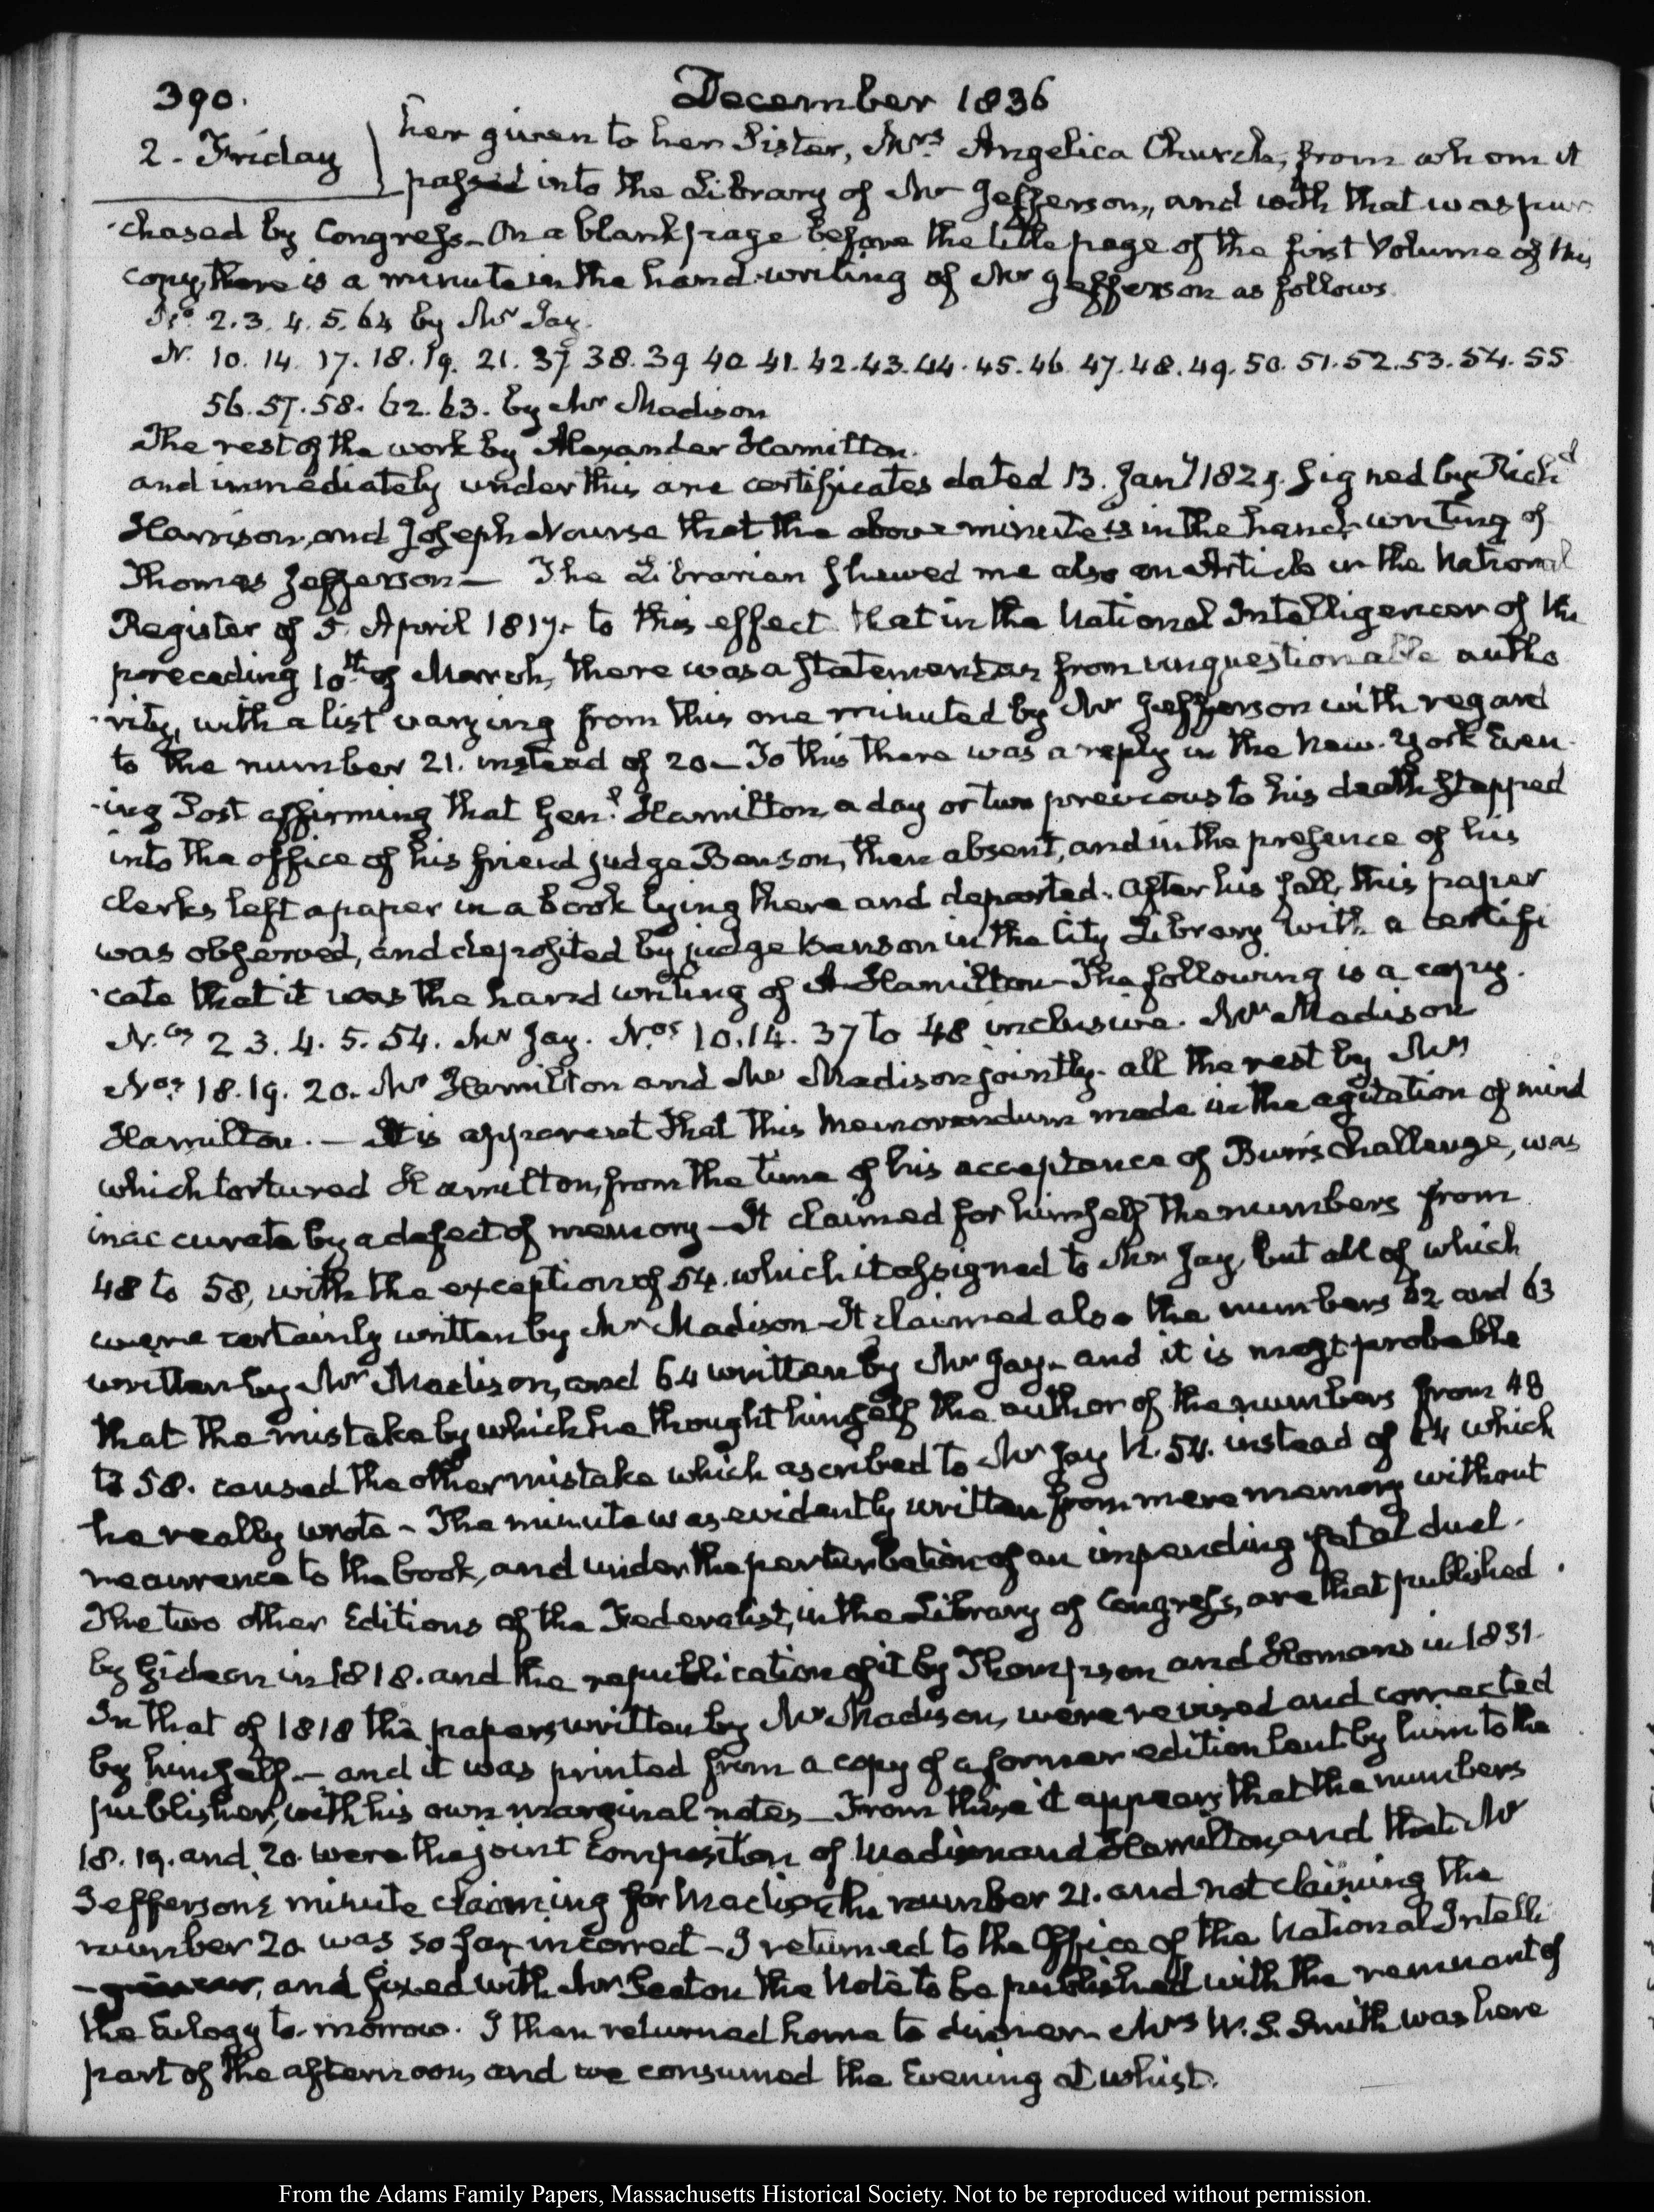 390.
December 1836
2. Friday
her given to her Sister, Mrs. Angelica Church, from whom it
passed into the Library of Mr Jefferson, and with that was pur
chased by Congress. On a blank page before the title page of the first Volume of this
copy, there is a minute in the hand-writing of Mr Jefferson as follows.
No. 2. 3. 4. 5. 64 by Mr Jay.
N. 10. 14. 17. 18. 19. 21. 37. 38. 39 40 41. 42. 43. 44. 45. 46. 47. 48. 49. 50. 51. 52. 53. 54. 55
56. 57. 58. 62. 63. by Mr Madison
The rest of the work by Alexander Hamilton.
and immediately under this are certificates dated 13. Jany 1829. signed by Richd
Harrison, and Joseph Nourse that the above minute is in the hand-writing of
Thomas Jefferson — The Librarian shewed me also an Article in the National
Register of 5. April 1817. to this effect that in the National Intelligencer of the
preceding 10th of March, there was a statement as from unquestionable autho
rity, with a list varying from this one minuted by Mr Jefferson with regard
to the number 21. instead of 20 — To this there was a reply in the New-York Even
ing Post affirming that Genl. Hamilton, a day or two previous to his death stepped
into the office of his friend judge Benson, then absent, and in the presence of his
clerks left a paper in a book lying there and departed. After his fall, this paper
was observed, and deposited by judge Benson in the City Library with a certifi
cate that it was the hand writing of A Hamilton — The following is a copy.
N.os 2 3. 4. 5. 54. Mr Jay. N.os 10. 14. 37 to 48 inclusive. Mr Madison
Nos 18. 19. 20. Mr Hamilton and Mr Madison jointly. all the rest by Mr
Hamilton. — It is apparent that this Memorandum made in the agitation of mind
which tortured Hamilton, from the time of his acceptance of Burr's challenge, was
inaccurate by a defect of memory — It claimed for himself the numbers from
48 to 58, with the exception of 54. which it assigned to Mr Jay, but all of which
were certainly written by Mr Madison — It claimed also the numbers 62 and 63
written by Mr Madison, and 64 written by Mr Jay — and it is most probable
that the mistake by which he thought himself the author of the numbers from 48
to 58. caused the other mistake which ascribed to Mr Jay N. 54. instead of 64 which
he really wrote — The minute was evidently written from mere memory without
recurrence to the book, and under the perturbation of an impending fatal duel.
The two other Editions of the Federalist, in the Library of Congress, are that published
by Gideon in 1818. and the republication of it by Thompson and Homans in 1831.
In that of 1818 the papers written by Mr Madison, were revised and corrected
by himself — and it was printed from a copy of a former edition lent by him to the
publisher, with his own marginal notes — From these it appears that the numbers
18. 19. and 20. were the joint composition of Madison and Hamilton, and that Mr
Jefferson's minute claiming for Madison the number 21. and not claiming the
number 20 was so far incorrect — I returned to the Office of the National Intelli
gencer, and fixed with Mr Seaton the Note to be published with the remnant of
the Eulogy to-morrow. I then returned home to dinner. Mrs W. S. Smith was here
part of the afternoon, and we consumed the Evening at whist.
From the Adams Family Papers, Massachusetts Historical Society. Not to be reproduced without permission.